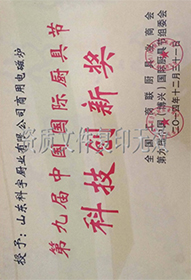 授予：山东科宇厨业有限公司商用电磁炉
第九届中国国际厨具节
科技创新奖
全国工商联厨具业商会
第九届中国（博兴）国际厨具节组委会
二〇一四年十二月三十一日
资质文件复印无效